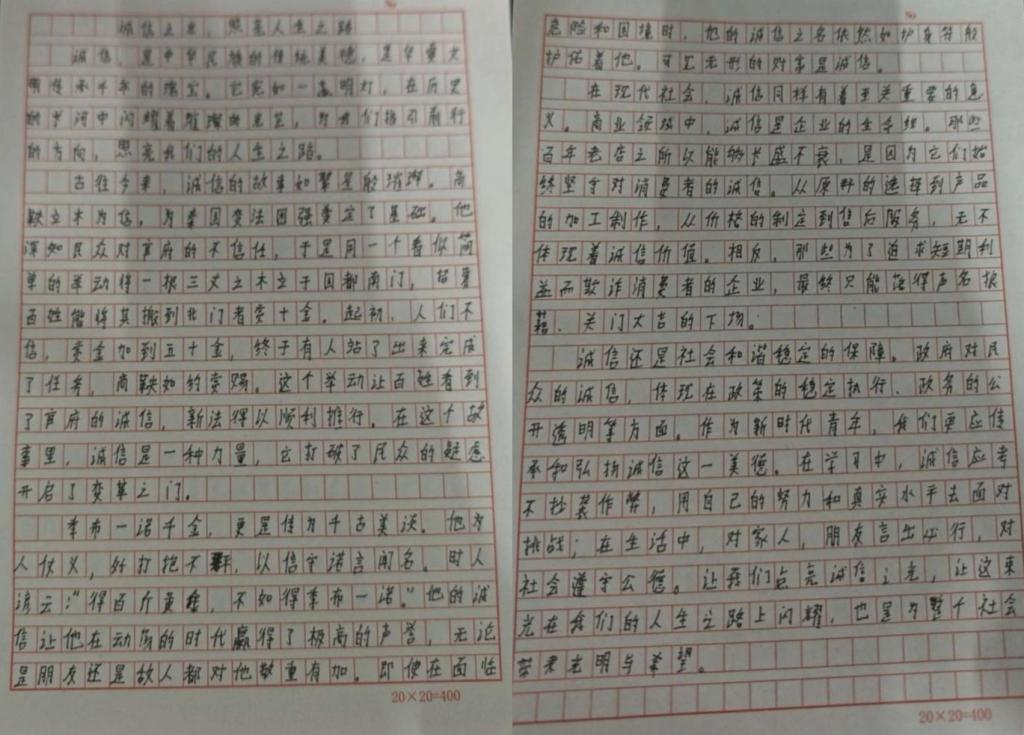 诚信之光，照亮人生之路
诚信，是中华民族的传统美德，是华夏文
明传承千年的瑰宝。它宛如一盏明灯，在历史
的长河中闪耀着璀璨的光芒，为我们指引前行
的方向，照亮我们的人生之路。
古往今来，诚信的故事如繁星般璀璨。商
鞅立木为信，为秦国变法图强奠定了基础。他
深知民众对官府的不信任，于是用一个看似简
单的举动将一根三丈之木立于国都南门，招募
百姓能将其搬到北门者赏十金。起初，人们不
信，赏金加到五十金，终于有人站了出来完成
了任务，商鞅如约赏赐。这个举动让百姓看到
了官府的诚信，新法得以顺利推行。在这个故
事里，诚信是一种力量，它打破了民众的疑虑
开启了变革之门。
季布一诺千金，更是传为千古美谈。他为
人仗义，好打抱不平，以信守诺言闻名。时人
谚云：“得百斤黄金，不如得季布一诺。”他的诚
信让他在动荡的时代赢得了极高的声誉，无论
是朋友还是敌人都对他敬重有加。即使在面临
危险和困境时，他的诚信之名依然如护身符般
护佑着他。可见无形的财富是诚信。
在现代社会，诚信同样有着至关重要的意
义。商业领域中，诚信是企业的生命线。那些
百年老店之所以能够长盛不衰，是因为它们始
终坚守对消费者的诚信。从原料的选择到产品
的加工制作，从价格的制定到售后服务，无不
体现着诚信价值。相反，那些为了追求短期利
益而欺诈消费者的企业，最终只能落得声名狼
藉、关门大吉的下场。
诚信还是社会和谐稳定的保障。政府对民
众的诚信，体现在政策的稳定执行、政务的公
开透明等方面。作为新时代青年，我们更应传
承和弘扬诚信这一美德。在学习中，诚信应考
不抄袭作弊，用自己的努力和真实水平去面对
挑战；在生活中，对家人，朋友言出必行，对
社会遵守公德。让我们点亮诚信之光，让这束
光在我们的人生之路上闪耀，也是为整个社会
带来光明与希望。
20×20=400
20×20=400